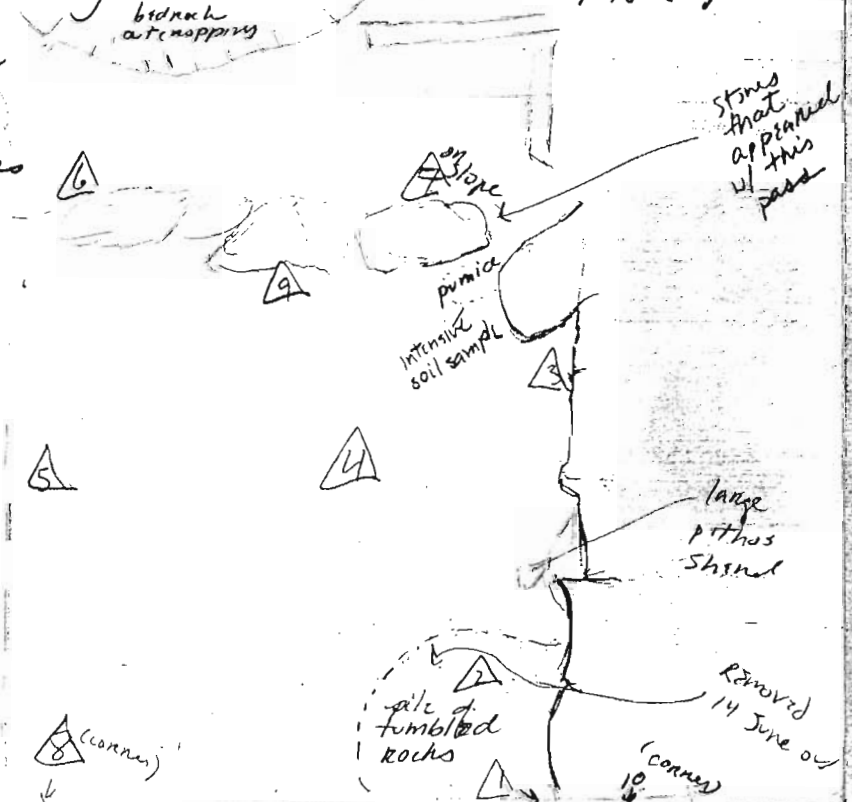 bedrock
outcropping
stones
that
appeared
w/ this
pass
6
7
on
slope
9
pumice
intensive
soil sample
3
5
4
large
pithos
sherd
2
pile of
tumbled
rocks
removed
14 June
8 (corner)
1
(corner)
10